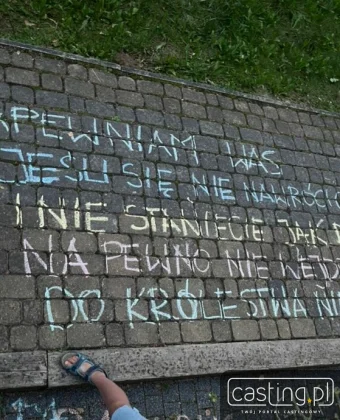 APEWNIAM WAS
JEŚLI SIĘ NIE NAWRÓCI
I NIE STANIECIE JAK
NA PEWNO NIE WEJD
DO KRÓLESTWA NI
casting.pl
TWÓJ PORTAL CASTINGOWY